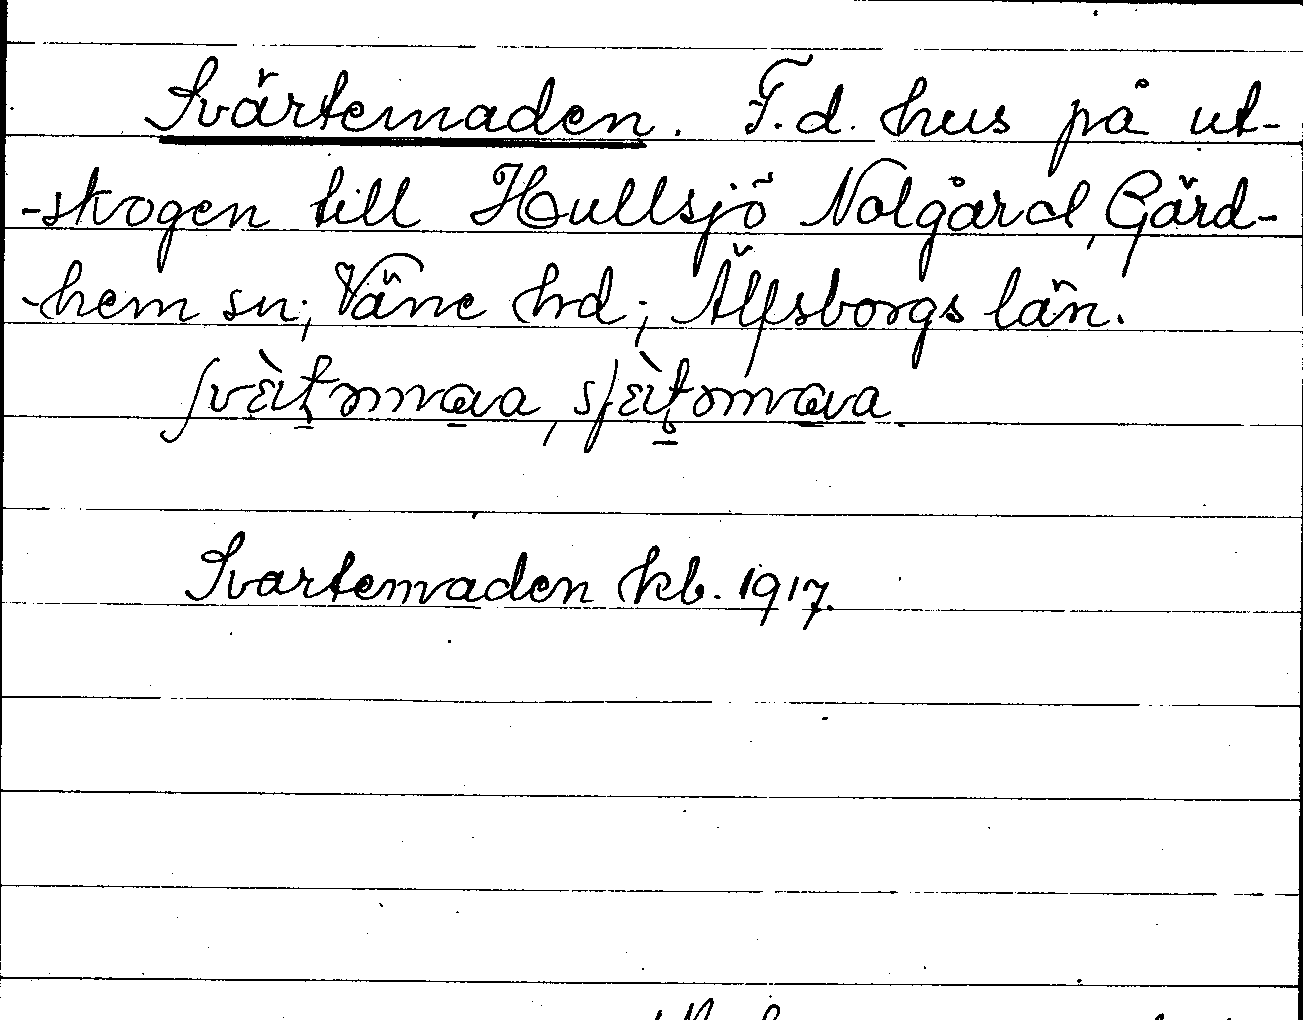 Svärtemaden. F.d. hus på ut-
-skogen till Hullsjö Nolgård, Gärd-
-hem sn; Väne hd; Älfsborgs län.
Svartemaden kb. 1917.